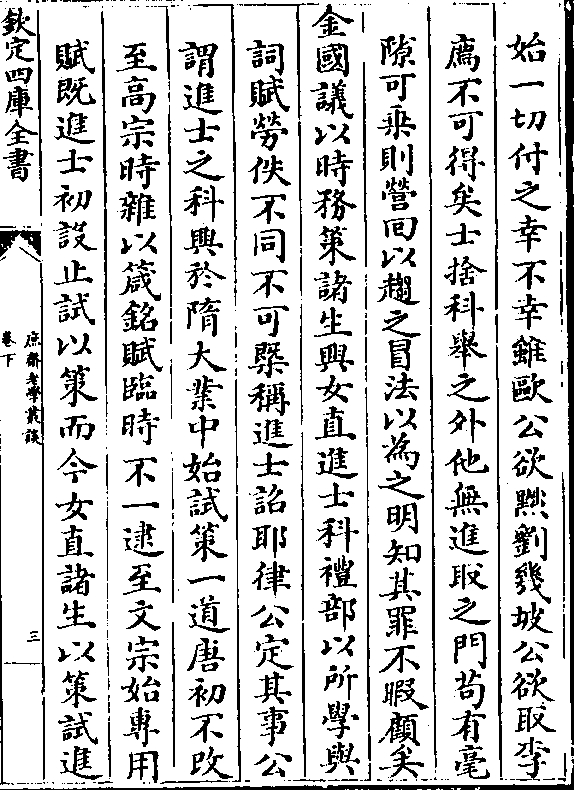 始一切付之幸不幸雖歐公欲黜劉幾坡公欲取李
廌不可得矣士捨科舉之外他無進取之門苟有毫
隙可乗則營囘以趨之冒法以為之明知其罪不暇顧矣
金國議以時務策諸生與女直進士科禮部以所學與
詞賦勞佚不同不可槩稱進士詔耶律公定其事公
謂進士之科興於隋大業中始試策一道唐初不改
至高宗時雜以箴銘賦臨時不一逮至文宗始専用
賦既進士初設止試以策而今女直諸生以策試進
欽定四庫全書
庶齋老學叢談
卷下
三